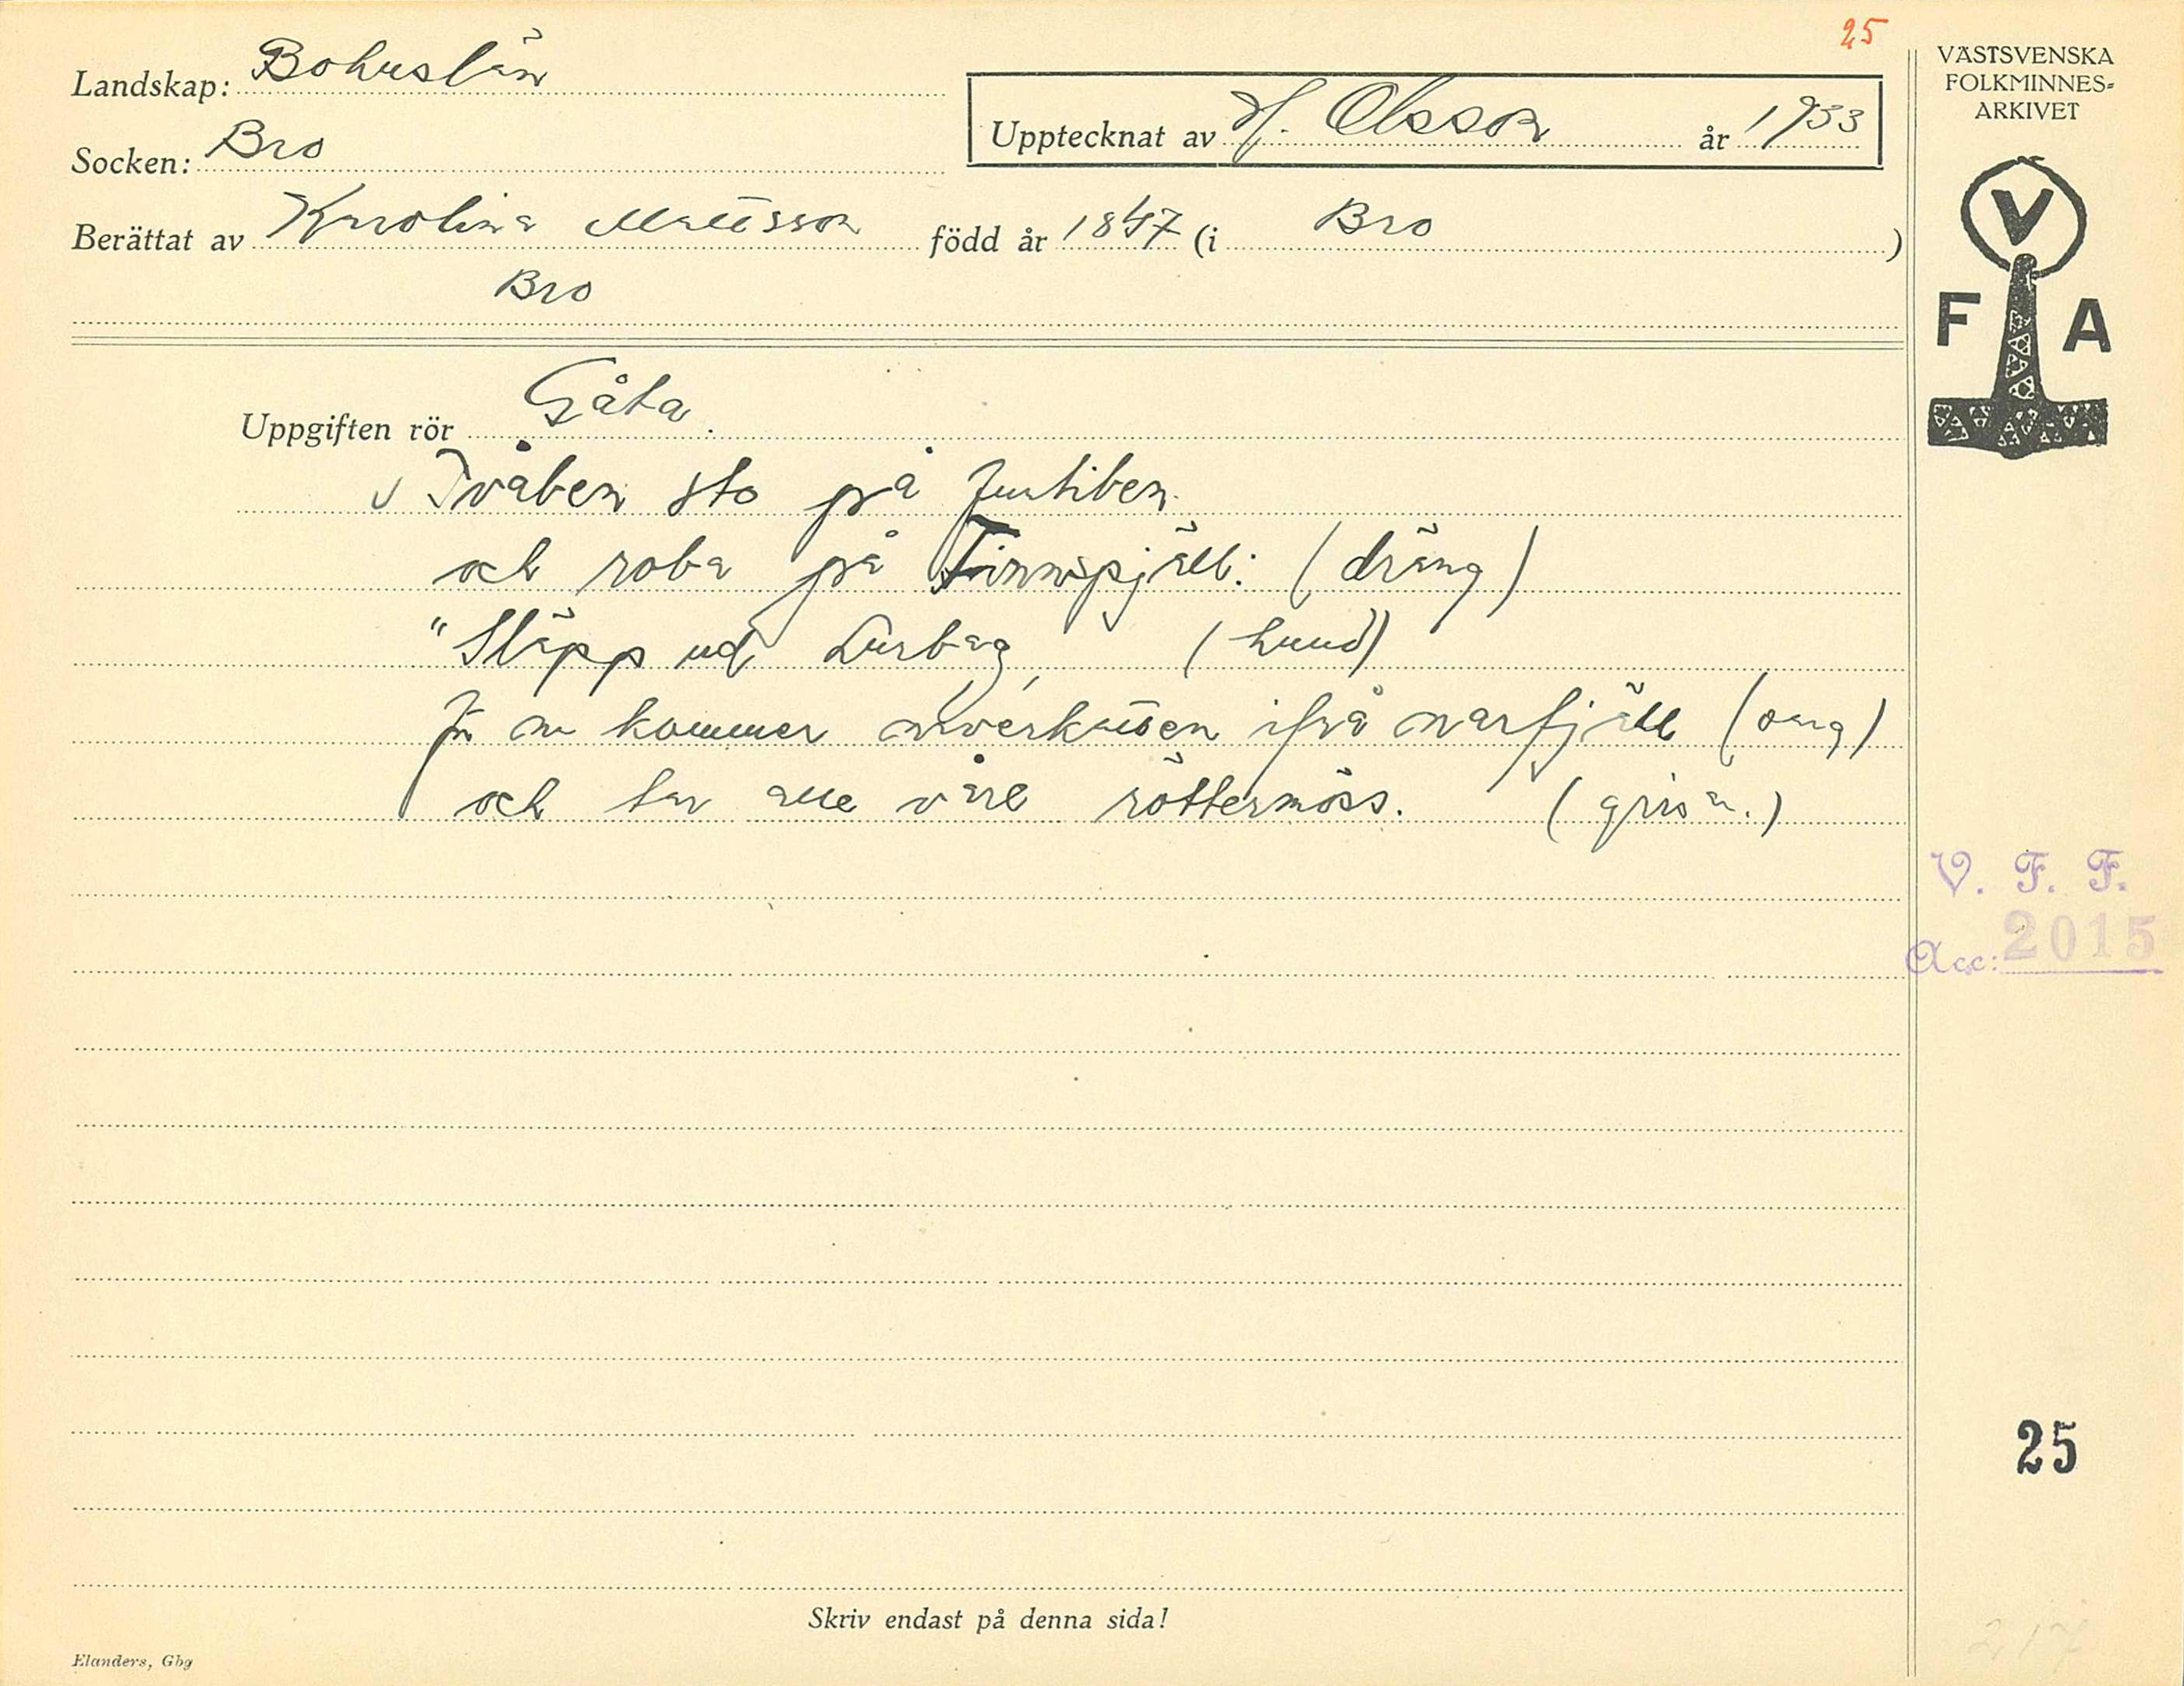 25
Landskap: Bohuslän
Socken: Bro
Upptecknat av H. Olsson år 1933
Berättat av Karolina Mattsson född år 1847 (i Bro)
Bro
VÄSTSVENSKA
FOLKMINNES-
ARKIVET
V
F A
Uppgiften rör Gåta.
Tvåben sto på
och roba på Finnspjäll: (dräng)
"Släpp ud Lurbag, (hund)
för nu kommer ifrå narfjäll
och tar alle våre röttermöss. (grisar.)
V. F. F.
Acc: 2015
25
Skriv endast på denna sida!
Elanders, Gbg